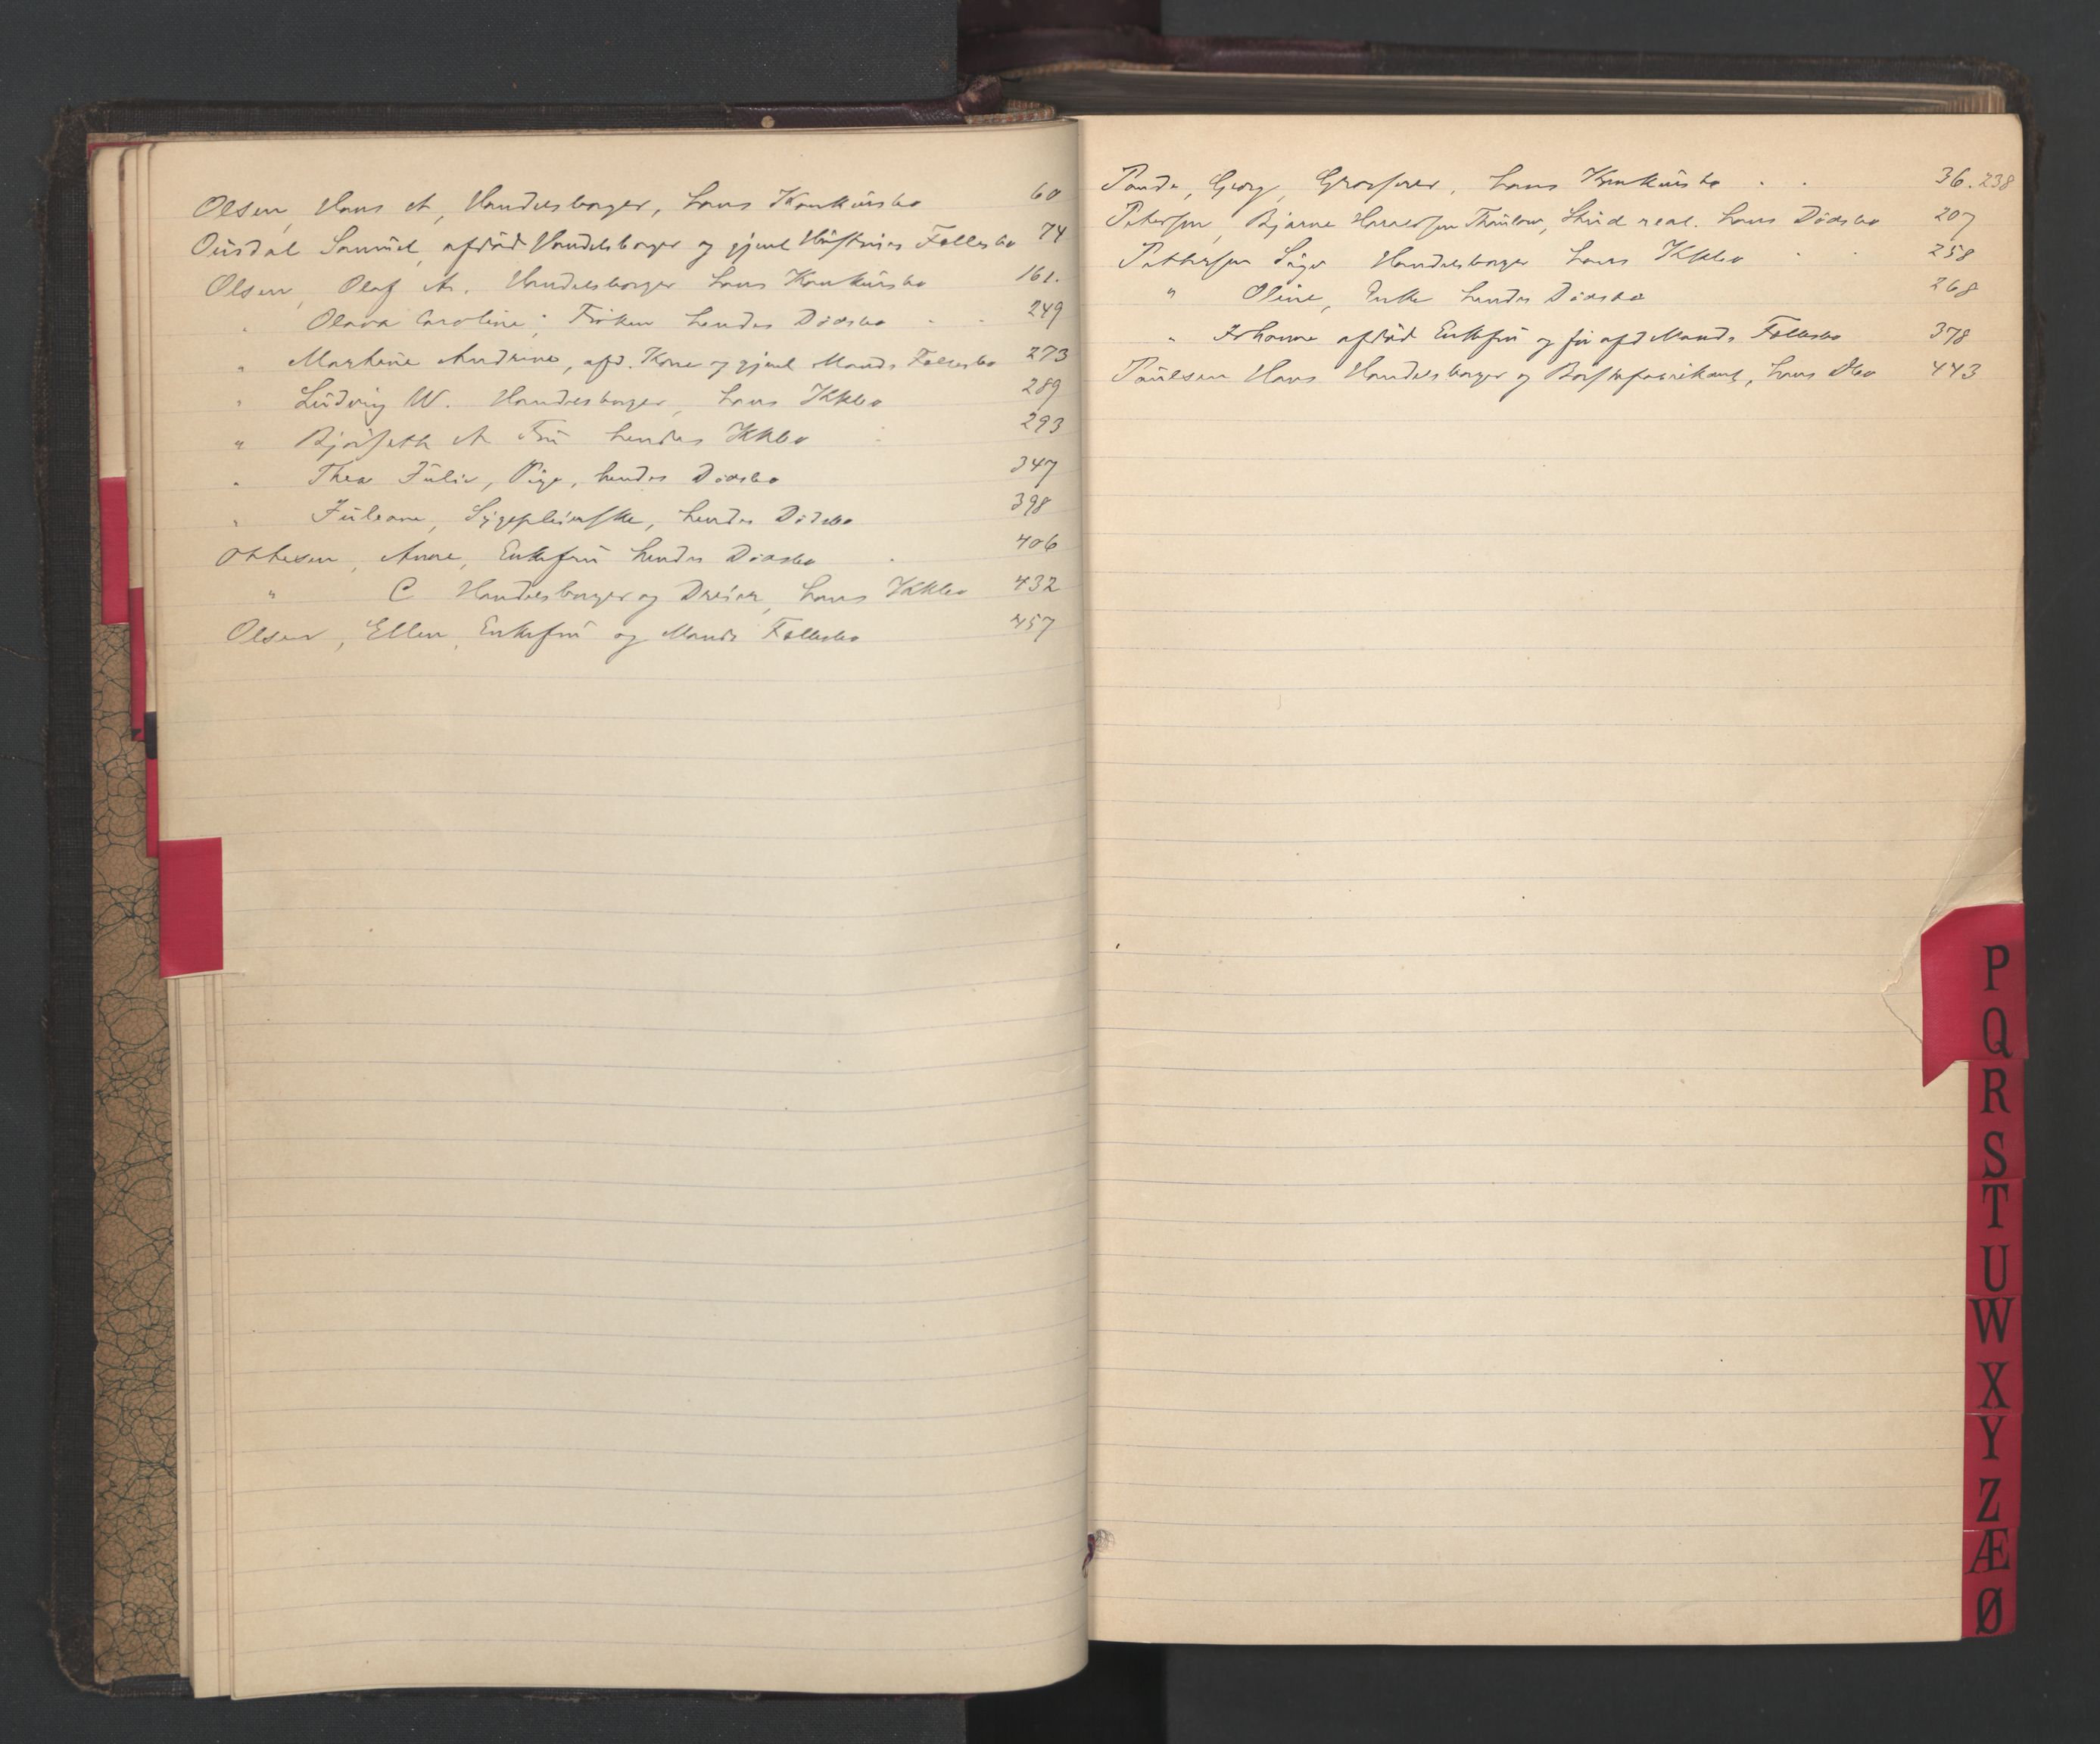 Olsen, Hans A, Handelsborger, hans Konkursbo 60
Ousdal Samuel, afdød Handelsborger og gjenl Hustrues Fællesbo 74
Olsen, Olaf A. Handelsborger hans Konkursbo 161.
" Olava Caroline, Frøken hendes Dødsbo 249
" Marthine Andrine, afd. Kone og gjenl Mands Fællesbo 273
" Ludvig W. Handelsborger, hans Kkbo 289
" A Fru hendes Kkbo 293
" Thea Julie, Pige, hendes Dødsbo 347
" Juliane, Sygepleierske, hendes Dødsbo 398
Ottesen, Anne, Enkefru hendes Dødsbo 406
" C Handelsborger og Dreier, hans Kkbo 432
Olsen, Ellen, Enkefru og Mands Fællesbo 457
Paude, Georg, Grosserer, hans Konkursbo 36.238
Petersen, Bjarne Thaulow, Stud real. hans Dødsbo 207
Pettersen Handelsborger hans Kkbo 258
" Oline, Enke hendes Dødsbo 268
" Johanne afdød Enkefru og før afd Mands Fællesbo 378
Paulsen Hans Handelsborger og Børstefabrikant, hans Dbo 443
P
Q
R
S
T
U
W
X
Y
Z
Æ
Ø